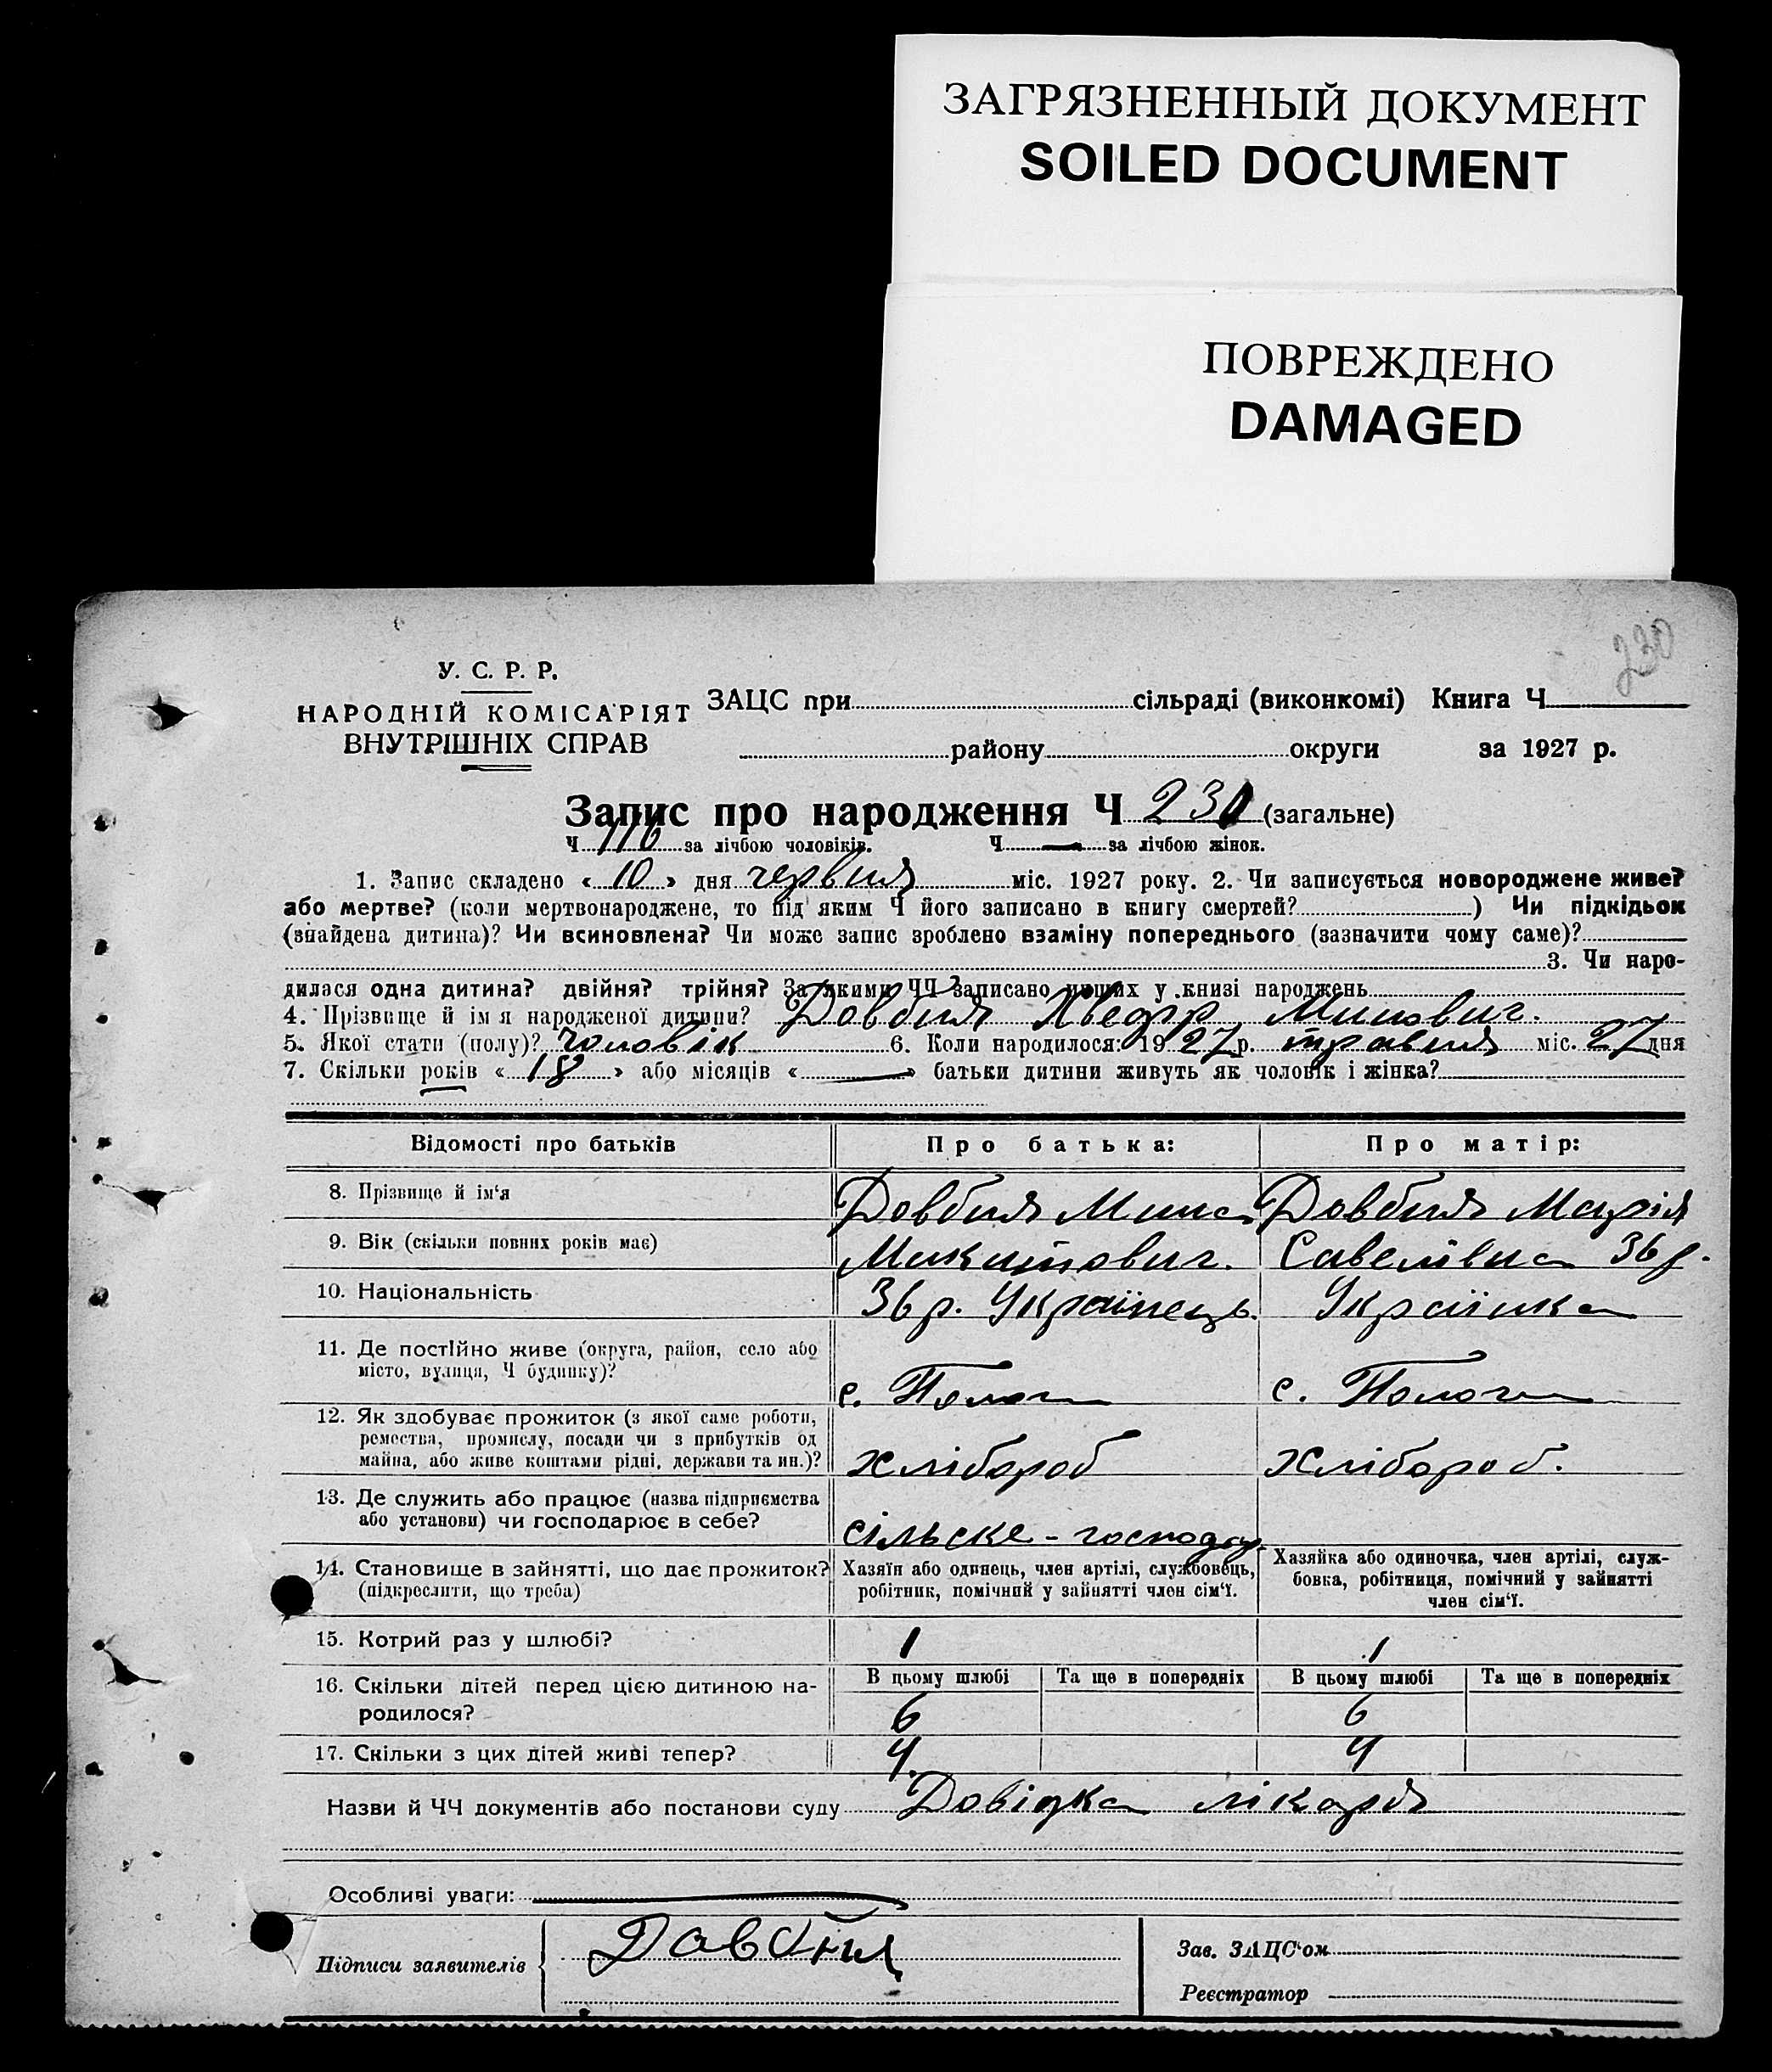 ЗАГРЯЗНЕННЫЙ ДОКУМЕНТ
SOILED DOCUMENT
ПОВРЕЖДЕНО
DAMAGED
230
У. С. Р. Р.
НАРОДНІЙ КОМІСАРІЯТ
ВНУТРІШНІХ СПРАВ
ЗАЦС при сільраді (виконкомі) Книга Ч
району округи за 1927 р.
Запис про народження Ч 230 (загальне)
Ч 116 за лічбою чоловіків. Ч — за лічбою жінок.
1. Запис складено « 10 » дня червня міс. 1927 року. 2. Чи записується новороджене живе?
або мертве? (коли мертвонароджене, то під яким Ч його записано в книгу смертей? ) Чи підкідьок
(знайдена дитина)? Чи всиновлена? Чи може запис зроблено взаміну попереднього (зазначити чому саме)?
3. Чи наро-
дилася одна дитина? двійня? трійня? За якими ЧЧ записано инших у книзі народжень
4. Прізвище й ім я народженої дитини? Довбня Хведір Минович.
5. Якої стати (полу)? Чоловік 6. Коли народилося: 19 27 р. травня міс. 27 дня
7. Скільки років « 18 » або місяців « — » батьки дитини живуть як чоловік і жінка?
Відомості про батьків Про батька: Про матір:
8. Прізвище й ім‘я Довбня Мина Довбня Марія
9. Вік (скільки повних років має) Микитович. Савелівна 36 р.
10. Національність 36 р. Українець. Українка
11. Де постійно живе (округа, район, село або
місто, вулиця, Ч будинку)? с. Пологи с. Пологи
12. Як здобуває прожиток (з якої саме роботи,
ремества, промислу, посади чи з прибутків од
майна, або живе коштами рідні, держави та ин.)? Хлібороб Хлібороб.
13. Де служить або працює (назва підприємства
або установи) чи господарює в себе? сільске-господар.
14. Становище в зайнятті, що дає прожиток? Хазяїн або одинець, член артілі, службовець, Хазяйка або одиночка, член артілі, служ-
(підкреслити, що треба) робітник, помічний у зайнятті член сім‘ї. бовка, робітниця, помічний у зайнятті
член сім‘ї.
15. Котрий раз у шлюбі? 1 1
16. Скільки дітей перед цією дитиною на- В цьому шлюбі Та ще в попередніх В цьому шлюбі Та ще в попередніх
родилося? 6 6
17. Скільки з цих дітей живі тепер? 4 4
Назви й ЧЧ документів або постанови суду Довідка лікаря
Особливі уваги: —
Підписи заявителів Довбня
Зав. ЗАЦС‘ом
Реєстратор